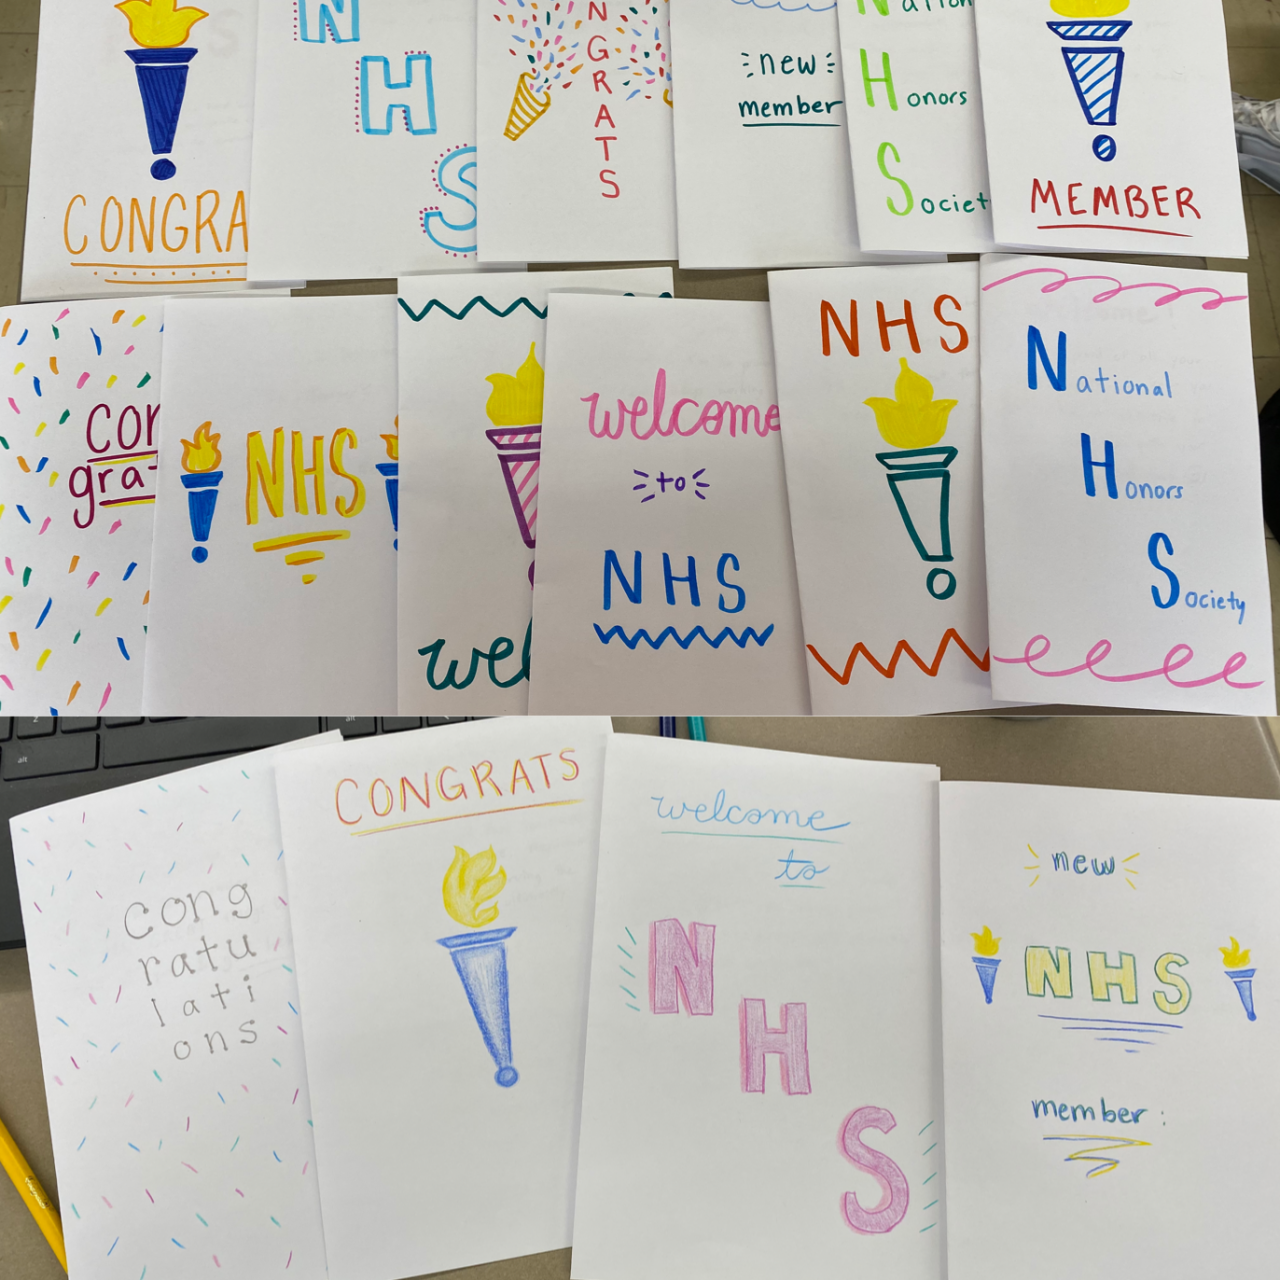 CONGRA
N
H
S
N
G
R
A
T
S
new
member
National
Honors
Societ
MEMBER
con
grat
NHS
wel
welcome
to
NHS
NHS
National
Honors
Society
cong
ratu
lati
ons
CONGRATS
welcome
to
N
H
S
new
NHS
member: